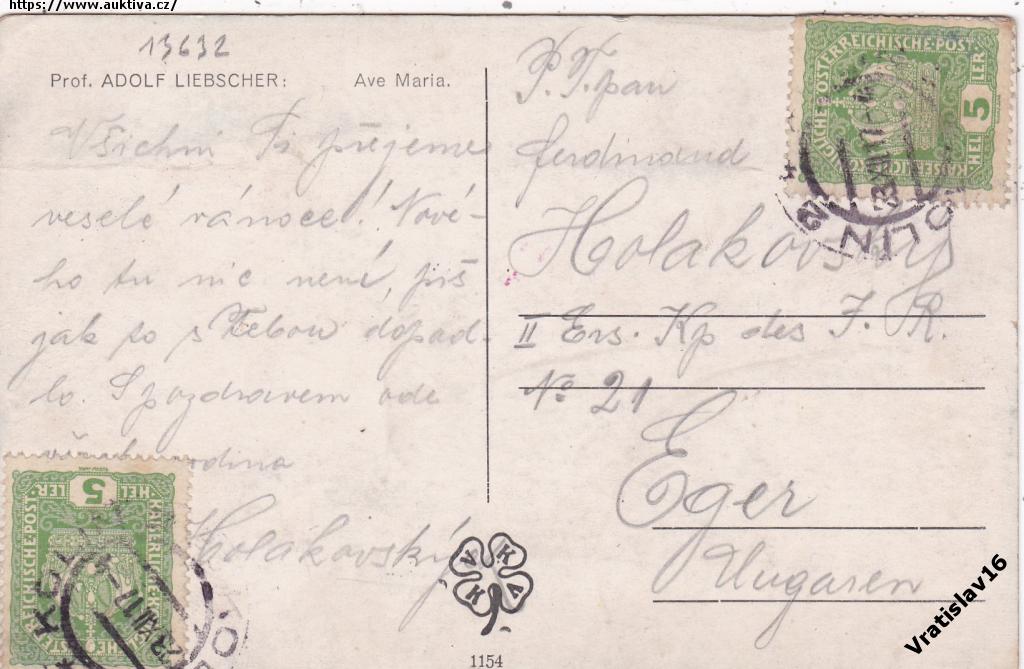 https://www.auktiva.cz/
13632
Prof. ADOLF LIEBSCHER: Ave Maria.
Všichni Ti přejeme
veselé vánoce! Nové-
ho tu nic není, piš
jak to s Tebou dopad-
lo. S pozdravem ode
všech rodina
Holakovský
P. T. pan
Ferdinand
Holakovský
II Ers. Kp des I. R.
No 21
Eger
Ungaren
KAISERLICHE KÖNIGLICHE ÖSTERREICHISCHE POST
5
HELLER
KOLÍN
23.XII.17
5
HELLER
23.XII.17
V K K A
1154
Vratislav16